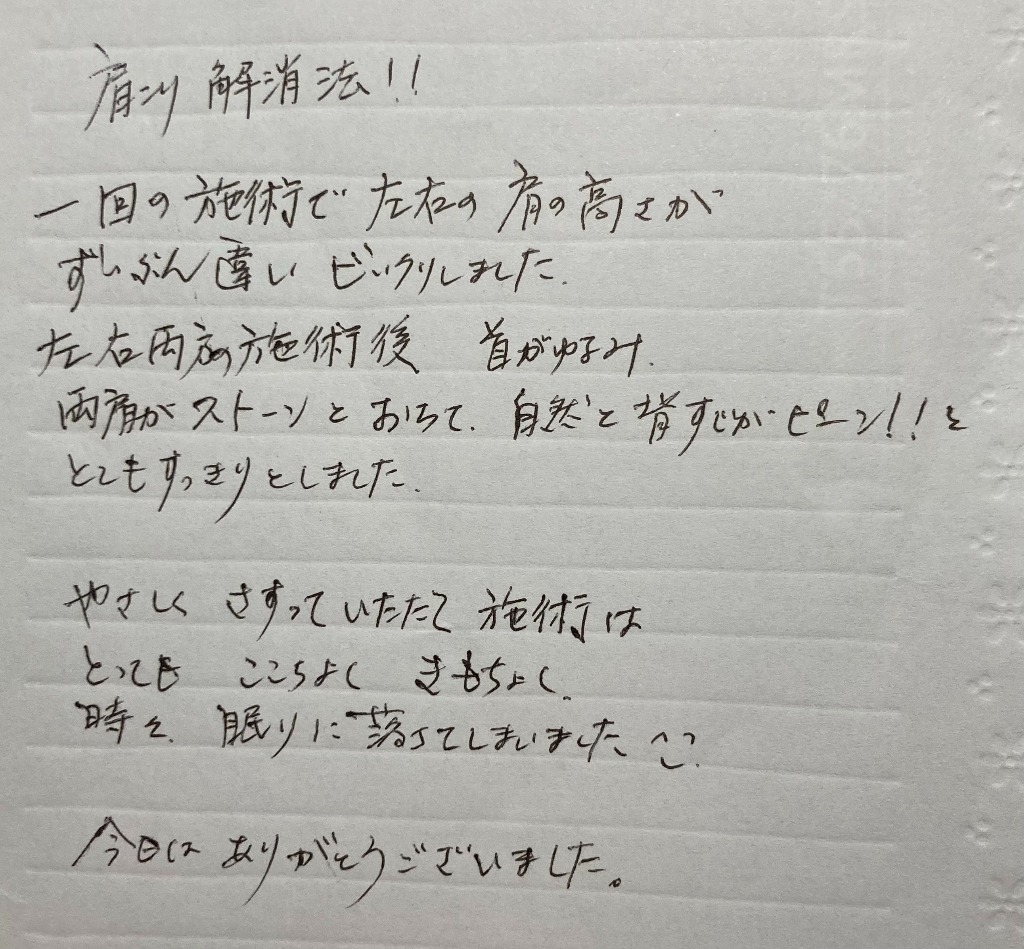 肩コリ 解消法!!
一回の施術で 左右の 肩の高さが
ずいぶん違い ビックリしました.
左右両方の施術後 首がゆるみ.
両肩が ストーンと おちて. 自然と 背すじが ピーン!!と
とてもすっきりとしました.
やさしく さすっていただて 施術は
とっても ここちよく きもちよく.
時々. 眠りに落ちてしまいました
今日は ありがとうございました。